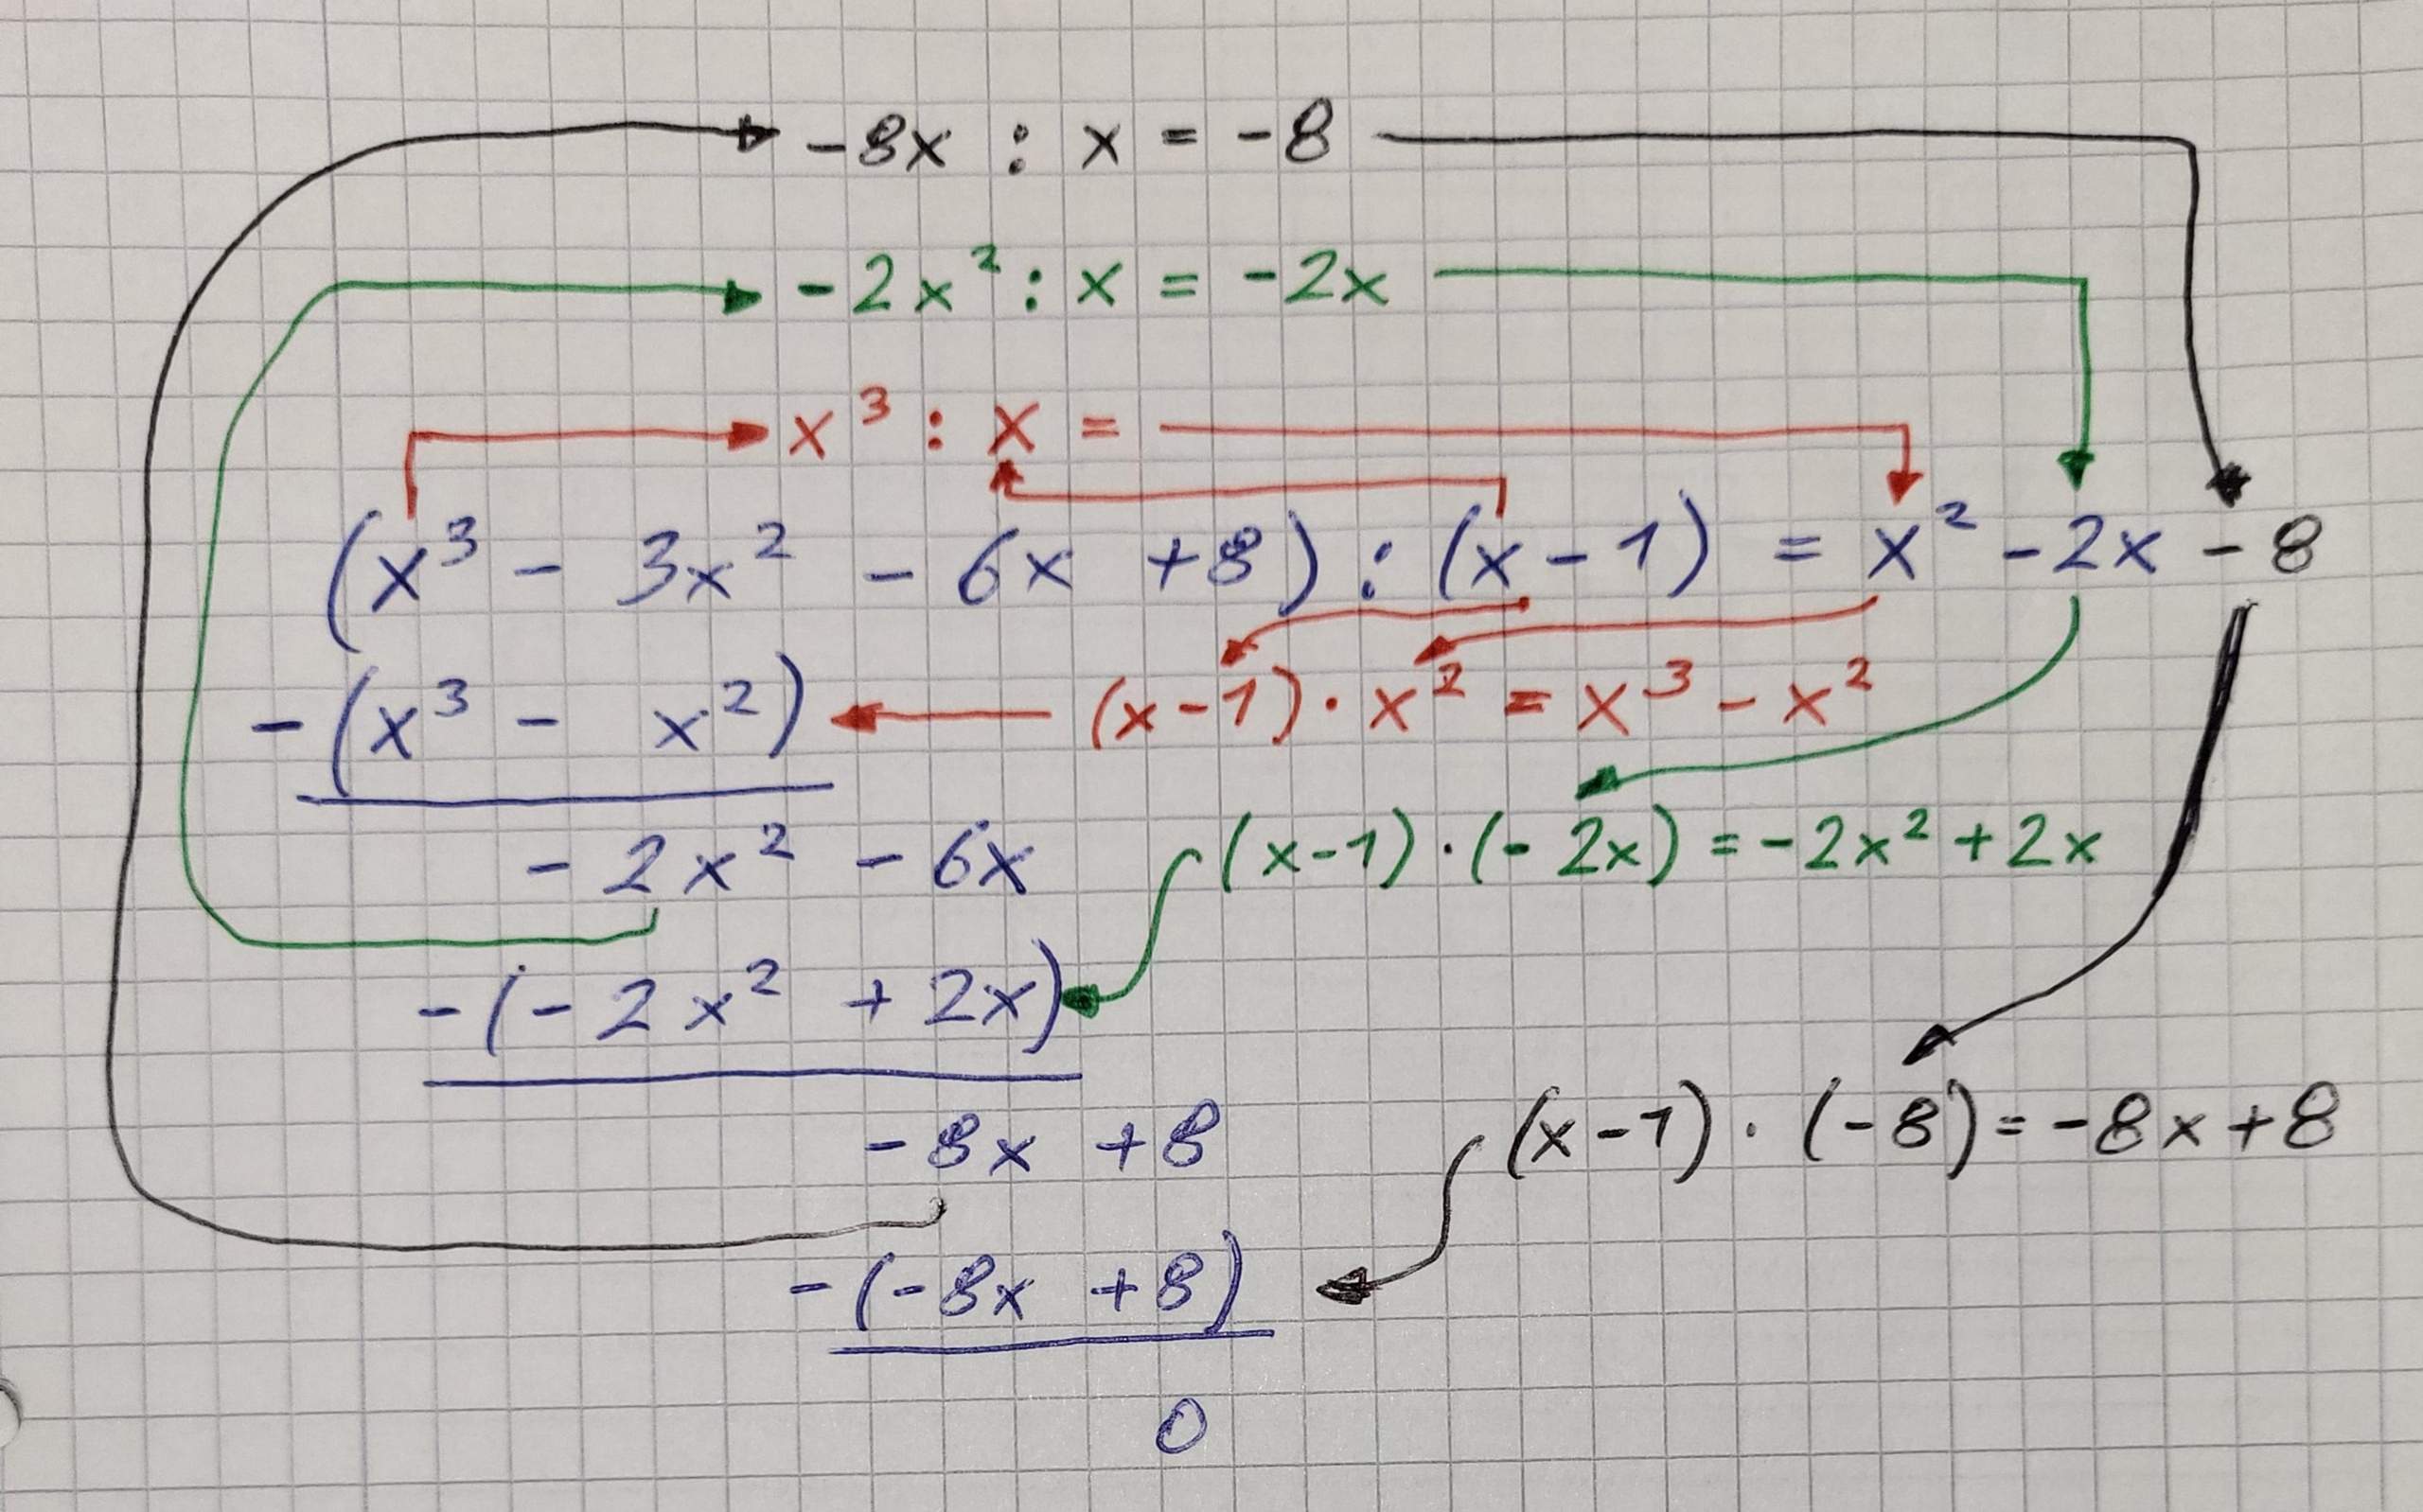 -8x : x = -8
-2x² : x = -2x
x³ : x =
(x³ - 3x² - 6x +8) : (x - 1) = x² -2x -8
-(x³ - x²) (x-1) · x² = x³ - x²
-2x² - 6x (x-1) · (-2x) = -2x² +2x
-(-2x² +2x)
-8x +8 (x-1) · (-8) = -8x+8
-(-8x +8)
0